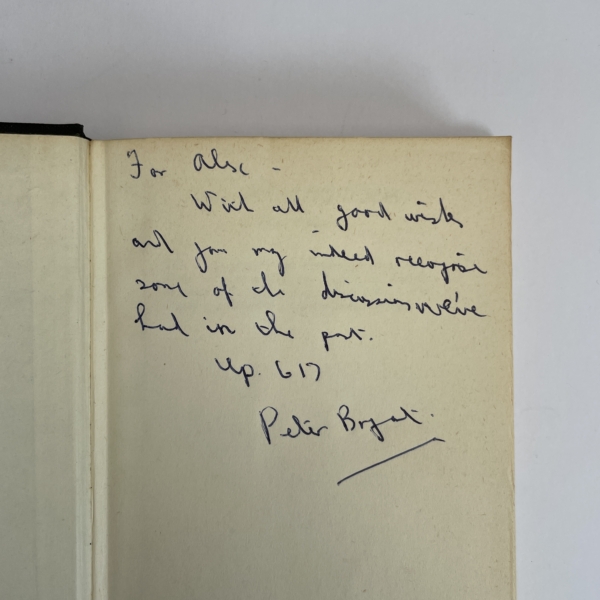 For Alec -
With all good wishes
and you may indeed recognise
some of the discussions we've
had in the past.
Up. 617
Peter Bryant.